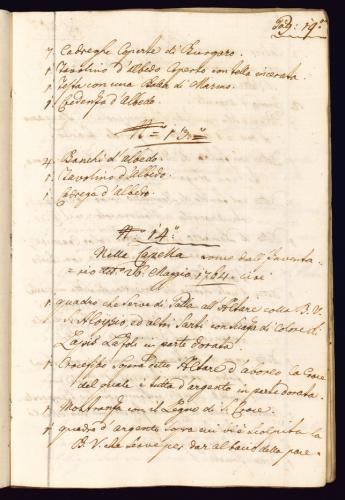 Pag: 19.
7 Cadreghe Coperte di Bulgaro.
1 Tavolino d'Albedo Coperto con tella incerata
1 Testa con una Bella di Marmo.
1 Credenza d'Albedo.
N° 13°
4 Banchi d'albedo.
1 Tavolino d'Albedo.
1 Cadrega d'Albedo.
N° 14°
Nella Capella come dall'Inventa-
=rio del 26. Maggio 1764. cioè
1 quadro che serve di Palla all'Altare colla B. V.
S. Aloysio, ed altri Santi con di Colore di
Lapis Lazoli in parte dorata.
1 Crocefisso sopra detto Altare d'avorio la Croce
del quale è tutta d'argento in parte dorata.
1 Mostranza con il Legno di S. Croce.
1 quadro d'argento sovra cui vi è scolpita la
B. V. che serve per dar al bacio della pace.